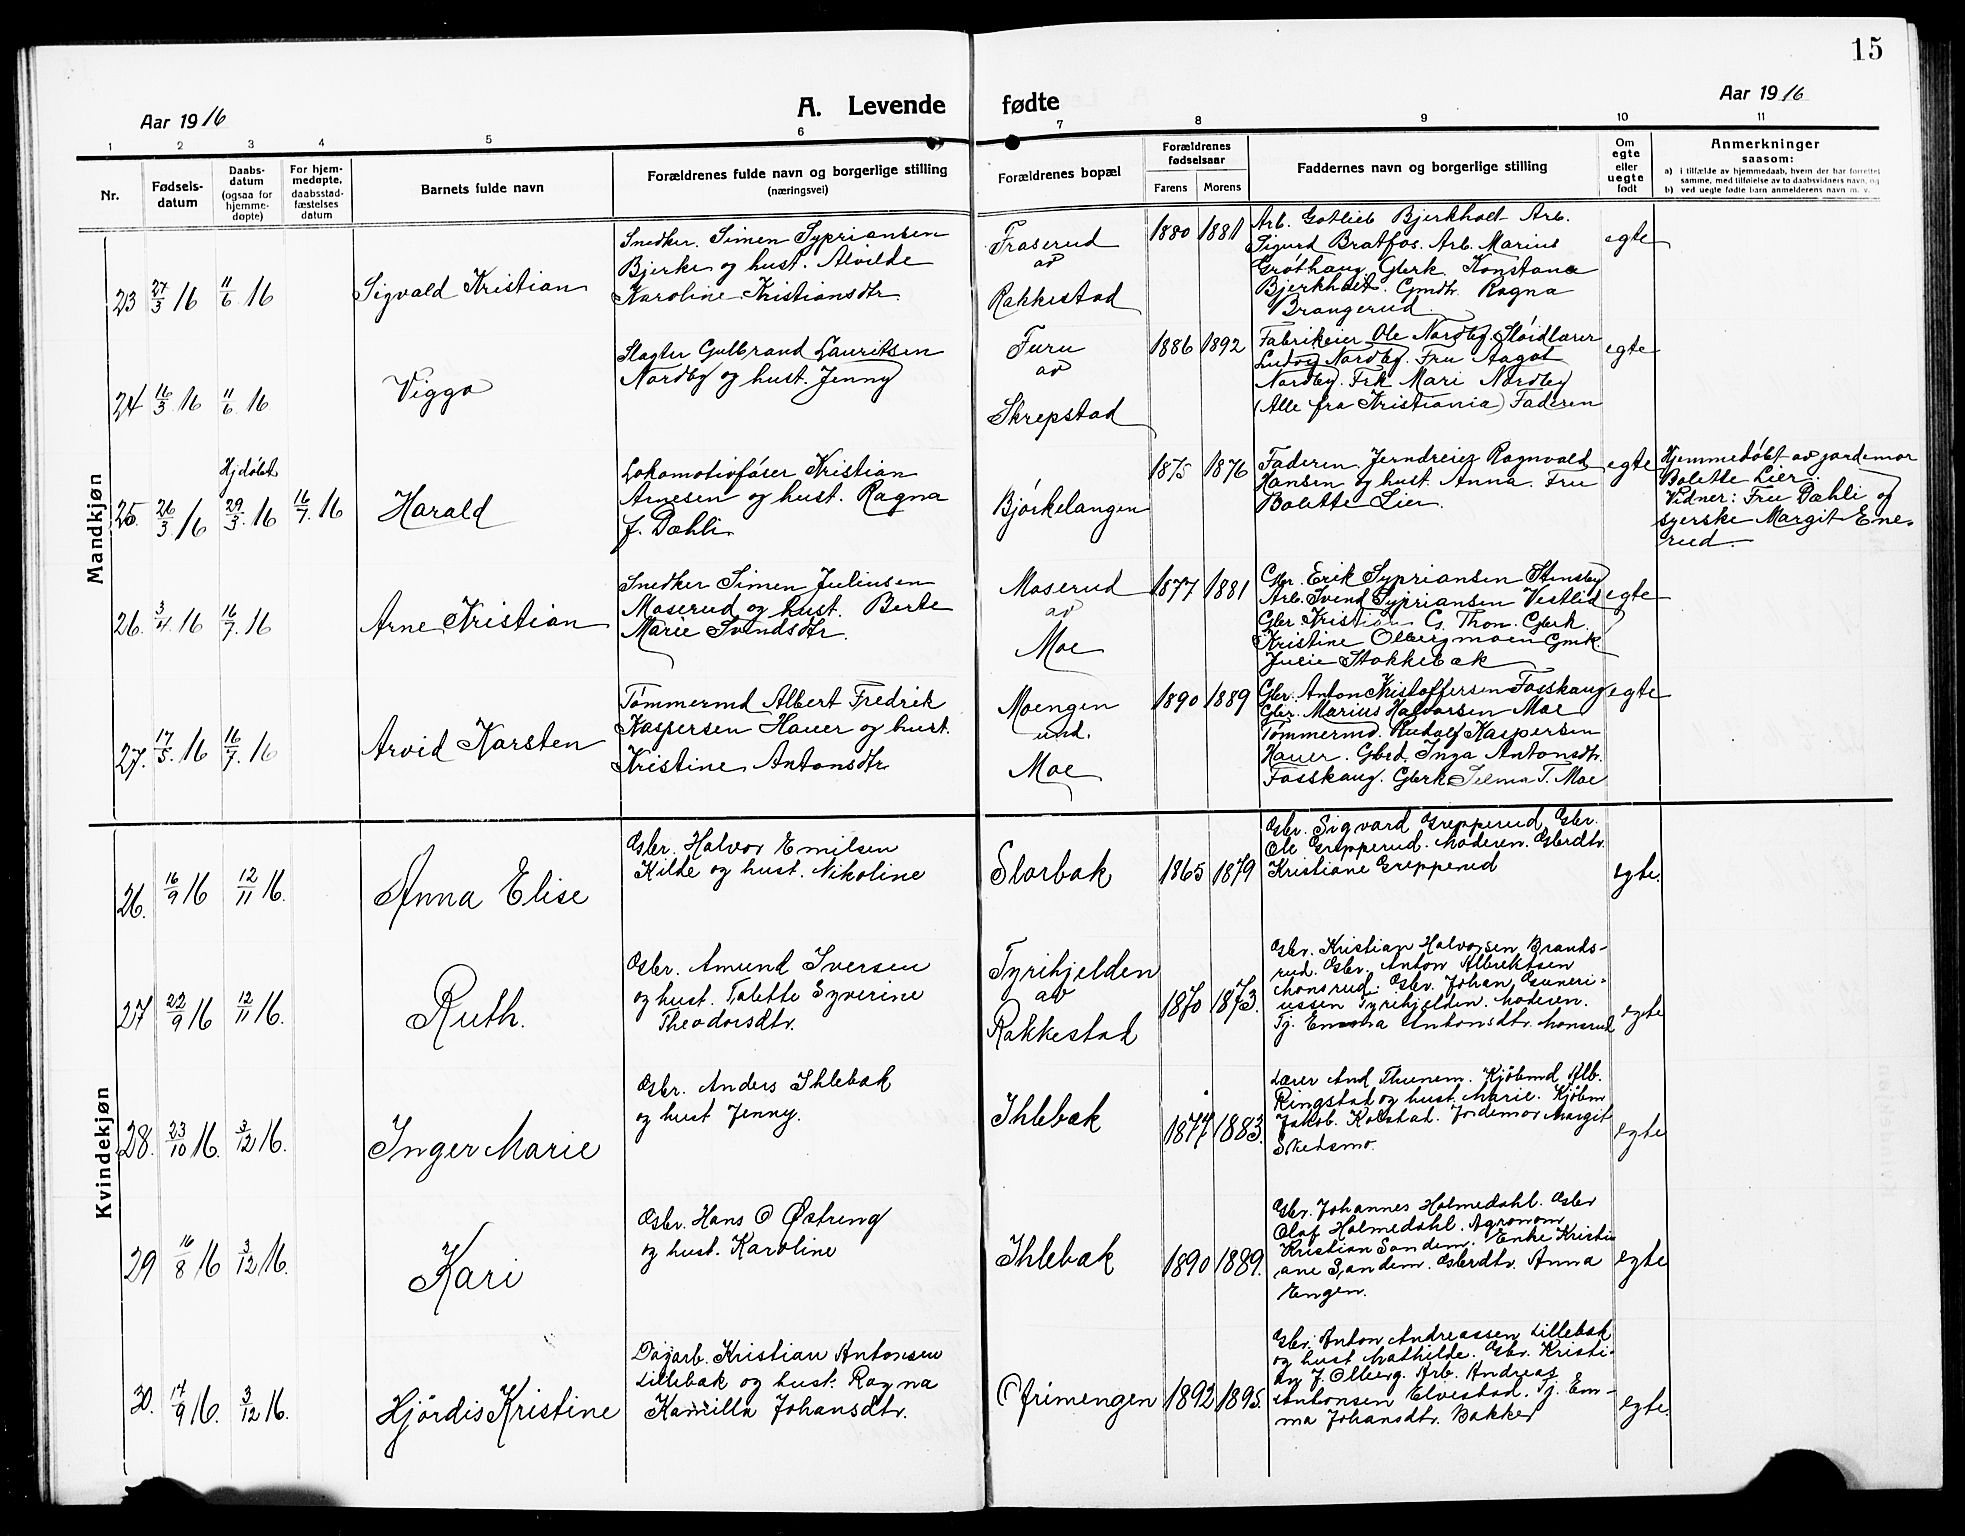 15
Aar 1916
A. Levende fødte
Aar 1916
1 2 3 4 5 6 7 8 9 10 11
Nr.
Fødsels-
datum
Daabs-
datum
(ogsaa for
hjemme-
døpte)
For hjem-
medøpte,
daabsstad-
fæstelses
datum
Barnets fulde navn
Forældrenes fulde navn og borgerlige stilling
(næringsvei)
Forældrenes bopæl
Forældrenes
fødselsaar
Farens Morens
Faddernes navn og borgerlige stilling
Om
egte
eller
uegte
født
Anmerkninger
saasom:
a) i tilfælde av hjemmedaab, hvem der har forrettet
samme, med tilføielse av to daabsvidners navn, og
b) ved uegte fødte barn anmelderens navn m. v.
Mandkjøn
23 27/3 16 11/6 16
Sigvald Kristian
Snedker. Simen Sypriansen
Bjerke og hust. Alvilde
Karoline Kristiansdtr
Fraserud
av
Rakkestad
1880 1881
Arb. Gotlieb Bjerkholt Arb.
Sigurd Bratfos. Arb. Marius
Grøthaug Gbrk Konstana
Bjerkholt. Gmdtr. Ragna
Brangerud.
egte
24 16/3 16 11/6 16
Vigga
Slagter Gulbrand Lauritsen
Nordby og hust. Jenny
Furu
av
Skrepstad
1886 1892
Fabrikeier Ole Nordby. Sløidlærer
Ludvig Nordby. Fru Aagot
Nordby. Frk Mari Nordby
(Alle fra Kristiania) Faderen
egte
Hjdøbt
25. 26/3 16 29/3. 16 16/7. 16
Harald
Lokomotivfører Kristian
Arnesen og hust. Ragna
f. Dæhli
Bjørkelangen
1875 1876
Faderen Jerndreier Ragnvald
Hansen og hust. Anna. Fru
Bolette Lier.
egte
Hjemmedøbt av jordemor
Bolette Lier.
Vidner: Fru Dæhli og
syerske Margit Ene-
rud.
26. 3/4 16 16/7. 16
Arne Kristian
Snedker Simen Juliusen
Moserud og hust. Berte
Marie Svendsdtr.
Moserud
av
Moe
1877 1881
Gbr. Erik Sypriansen Stensby
Arb. Svend Sypriansen Vestlid
Gbr Kristian G. Thon. Gbrk.
Kristine Olbergmoen Gmk.
Julie Stokkebæk
egte
27. 17/5. 16 16/7. 16
Arvid Karsten
Tømmermd Albert Fredrik
Kaspersen Hauer og hust.
Kristine Antonsdtr.
Moengen
und.
Moe
1890 1889
Gbr. Anton Kristoffersen Fosskaug
Gbr. Marius Halvorsen Moe
Tømmermd. Rudolf Kaspersen
Hauer. Gbrd. Inga Antonsdtr.
Fosskaug. Gbrk. Selma T. Moe
egte
Kvindekjøn
26. 16/9 16 12/11 16.
Anna Elise
Gbr. Halvor Emilsen
Kilde og hust. Nikoline
Storbæk
1865 1879
Gbr. Sigvard Grepperud Gbr.
Ole Grepperud. Moderen. Gbrdtr.
Kristiane Grepperud
egte.
27 22/9 16 12/11 16.
Ruth.
Gbr. Amund Iversen
og hust. Tolette Syverine
Theodorsdtr.
Tyrihjelden
av
Rakkestad
1870 1873.
Gbr. Kristian Halvorsen Brands-
rud. Gbr. Anton Albrektsen
Monsrud. Gbr. Johan Guneri-
ussen Tyrihjelden. Moderen.
Tj. Emma Antonsdtr. Monsrud
egte
28. 23/10 16. 3/12 16.
Inger Marie
Gbr. Anders Ihlebæk
og hust Jenny.
Ihlebæk
1877 1883.
Lærer And Thunem. Kjøbmd Alb.
Ringstad og hust. Marie. Kjøbm
Jakob. Kolstad. Jordemor Margit
Skedsmo.
egte
29 16/8 16 3/12 16.
Kari
Gbr. Hans O Østreng
og hust. Karoline
Ihlebæk
1890 1889.
Gbr. Johannes Holmedahl. Gbr
Olaf Holmedahl. Agronom
Kristian Sandem. Enke Kristi-
ane Sandem. Gbrdtr. Anna
Engen.
egte
30. 17/9 16. 3/12 16.
Hjørdis Kristine
Dagarb. Kristian Antonsen
Lillebæk og hust. Ragna
Kamilla Johansdtr.
Ofrimengen
1892 1895.
Gbr. Anton Andreassen Lillebæk
og hust Mathilde. Gbr. Kristi-
an J. Olberg. Arb. Andreas
Antonsen Elvestad. Tj. Em-
ma Johansdtr. Bakker
egte.